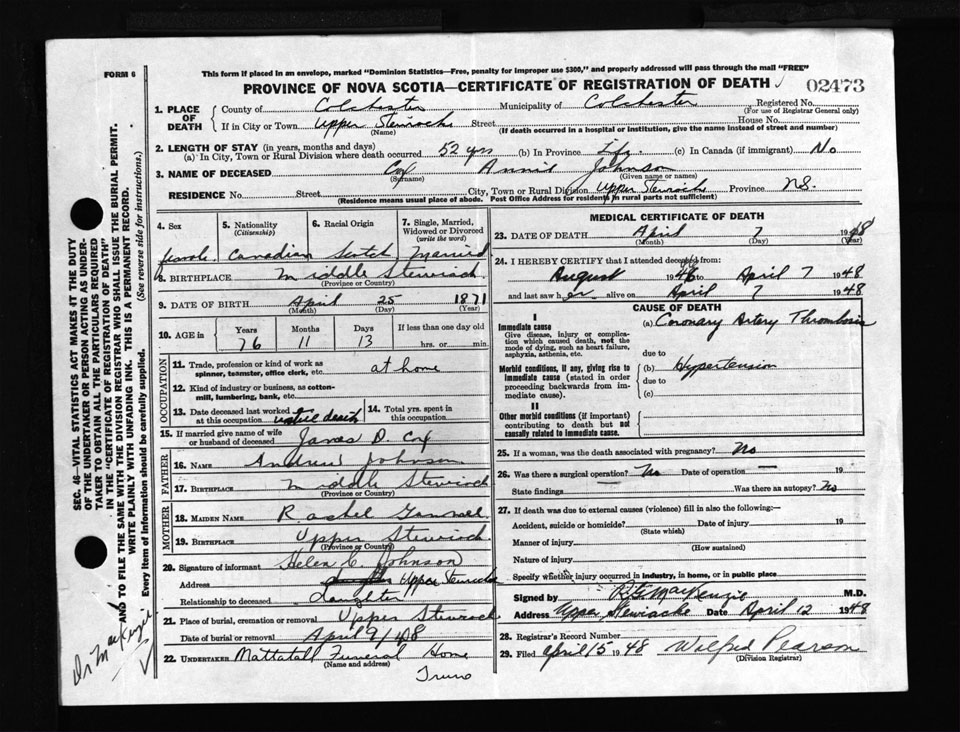 FORM 6
This form if placed in an envelope, marked "Dominion Statistics—Free, penalty for improper use $300," and properly addressed will pass through the mail "FREE"
PROVINCE OF NOVA SCOTIA—CERTIFICATE OF REGISTRATION OF DEATH 02473
1. PLACE OF DEATH { County of Colchester Municipality of Colchester Registered No.
(For use of Registrar General only)
If in City or Town Upper Stewiacke Street House No.
(Name) (If death occurred in a hospital or institution, give the name instead of street and number)
2. LENGTH OF STAY (in years, months and days)
(a) In City, Town or Rural Division where death occurred 52 yrs (b) In Province Life (c) In Canada (if immigrant) No
3. NAME OF DECEASED Cox Annie Johnson
(Surname) (Given name or names)
RESIDENCE No. Street City, Town or Rural Division Upper Stewiacke Province N.S.
(Residence means usual place of abode. Post Office Address for residents in rural parts not sufficient)
4. Sex 5. Nationality (Citizenship) 6. Racial Origin 7. Single, Married, Widowed or Divorced (write the word)
female Canadian Scotch Married
8. BIRTHPLACE Middle Stewiack
(Province or Country)
9. DATE OF BIRTH April 25 1871
(Month) (Day) (Year)
10. AGE in { Years Months Days If less than one day old
76 11 13 hrs. or min.
OCCUPATION
11. Trade, profession or kind of work as spinner, teamster, office clerk, etc. at home
12. Kind of industry or business, as cotton-mill, lumbering, bank, etc.
13. Date deceased last worked at this occupation until death 14. Total yrs. spent in this occupation
15. If married give name of wife or husband of deceased James D. Cox
FATHER
16. NAME Andrew Johnson
17. BIRTHPLACE Middle Stewiack
(Province or Country)
MOTHER
18. MAIDEN NAME Rachel
19. BIRTHPLACE Upper Stewiack
(Province or Country)
20. Signature of informant Helen C Johnson
Address daughter Upper Stewiacke
Relationship to deceased daughter
21. Place of burial, cremation or removal Upper Stewiack
Date of burial or removal April 9/48
22. UNDERTAKER Mattatall Funeral Home
(Name and address)
Truro
MEDICAL CERTIFICATE OF DEATH
23. DATE OF DEATH April 7 1948
(Month) (Day) (Year)
24. I HEREBY CERTIFY that I attended deceased from:
August 1946 to April 7 1948
and last saw her alive on April 7 1948
CAUSE OF DEATH
I
Immediate cause (a) Coronary Artery Thrombosis
Give disease, injury or complication which caused death, not the mode of dying, such as heart failure, asphyxia, asthenia, etc.
due to
Morbid conditions, if any, giving rise to immediate cause (stated in order proceeding backwards from immediate cause). (b) Hypertension
due to
(c)
II
Other morbid conditions (if important) contributing to death but not causally related to immediate cause.
25. If a woman, was the death associated with pregnancy? No
26. Was there a surgical operation? No Date of operation — 19
State findings — Was there an autopsy? No
27. If death was due to external causes (violence) fill in also the following:—
Accident, suicide or homicide? Date of injury 19
(State which)
Manner of injury
(How sustained)
Nature of injury
Specify whether injury occurred in industry, in home, or in public place
Signed by MacKenzie M.D.
Address Upper Stewiacke Date April 12 1948
28. Registrar's Record Number
29. Filed April 15 1948 Wilfred Pearson
(Division Registrar)
SEC. 46—VITAL STATISTICS ACT MAKES IT THE DUTY
OF THE UNDERTAKER OR PERSON ACTING AS UNDER-
TAKER TO OBTAIN ALL THE PARTICULARS REQUIRED
IN THE "CERTIFICATE OF REGISTRATION OF DEATH"
AND TO FILE THE SAME WITH THE DIVISION REGISTRAR WHO SHALL ISSUE THE BURIAL PERMIT.
WRITE PLAINLY WITH UNFADING INK. THIS IS A PERMANENT RECORD.
Every item of Information should be carefully supplied. (See reverse side for instructions.)
Dr MacKenzie